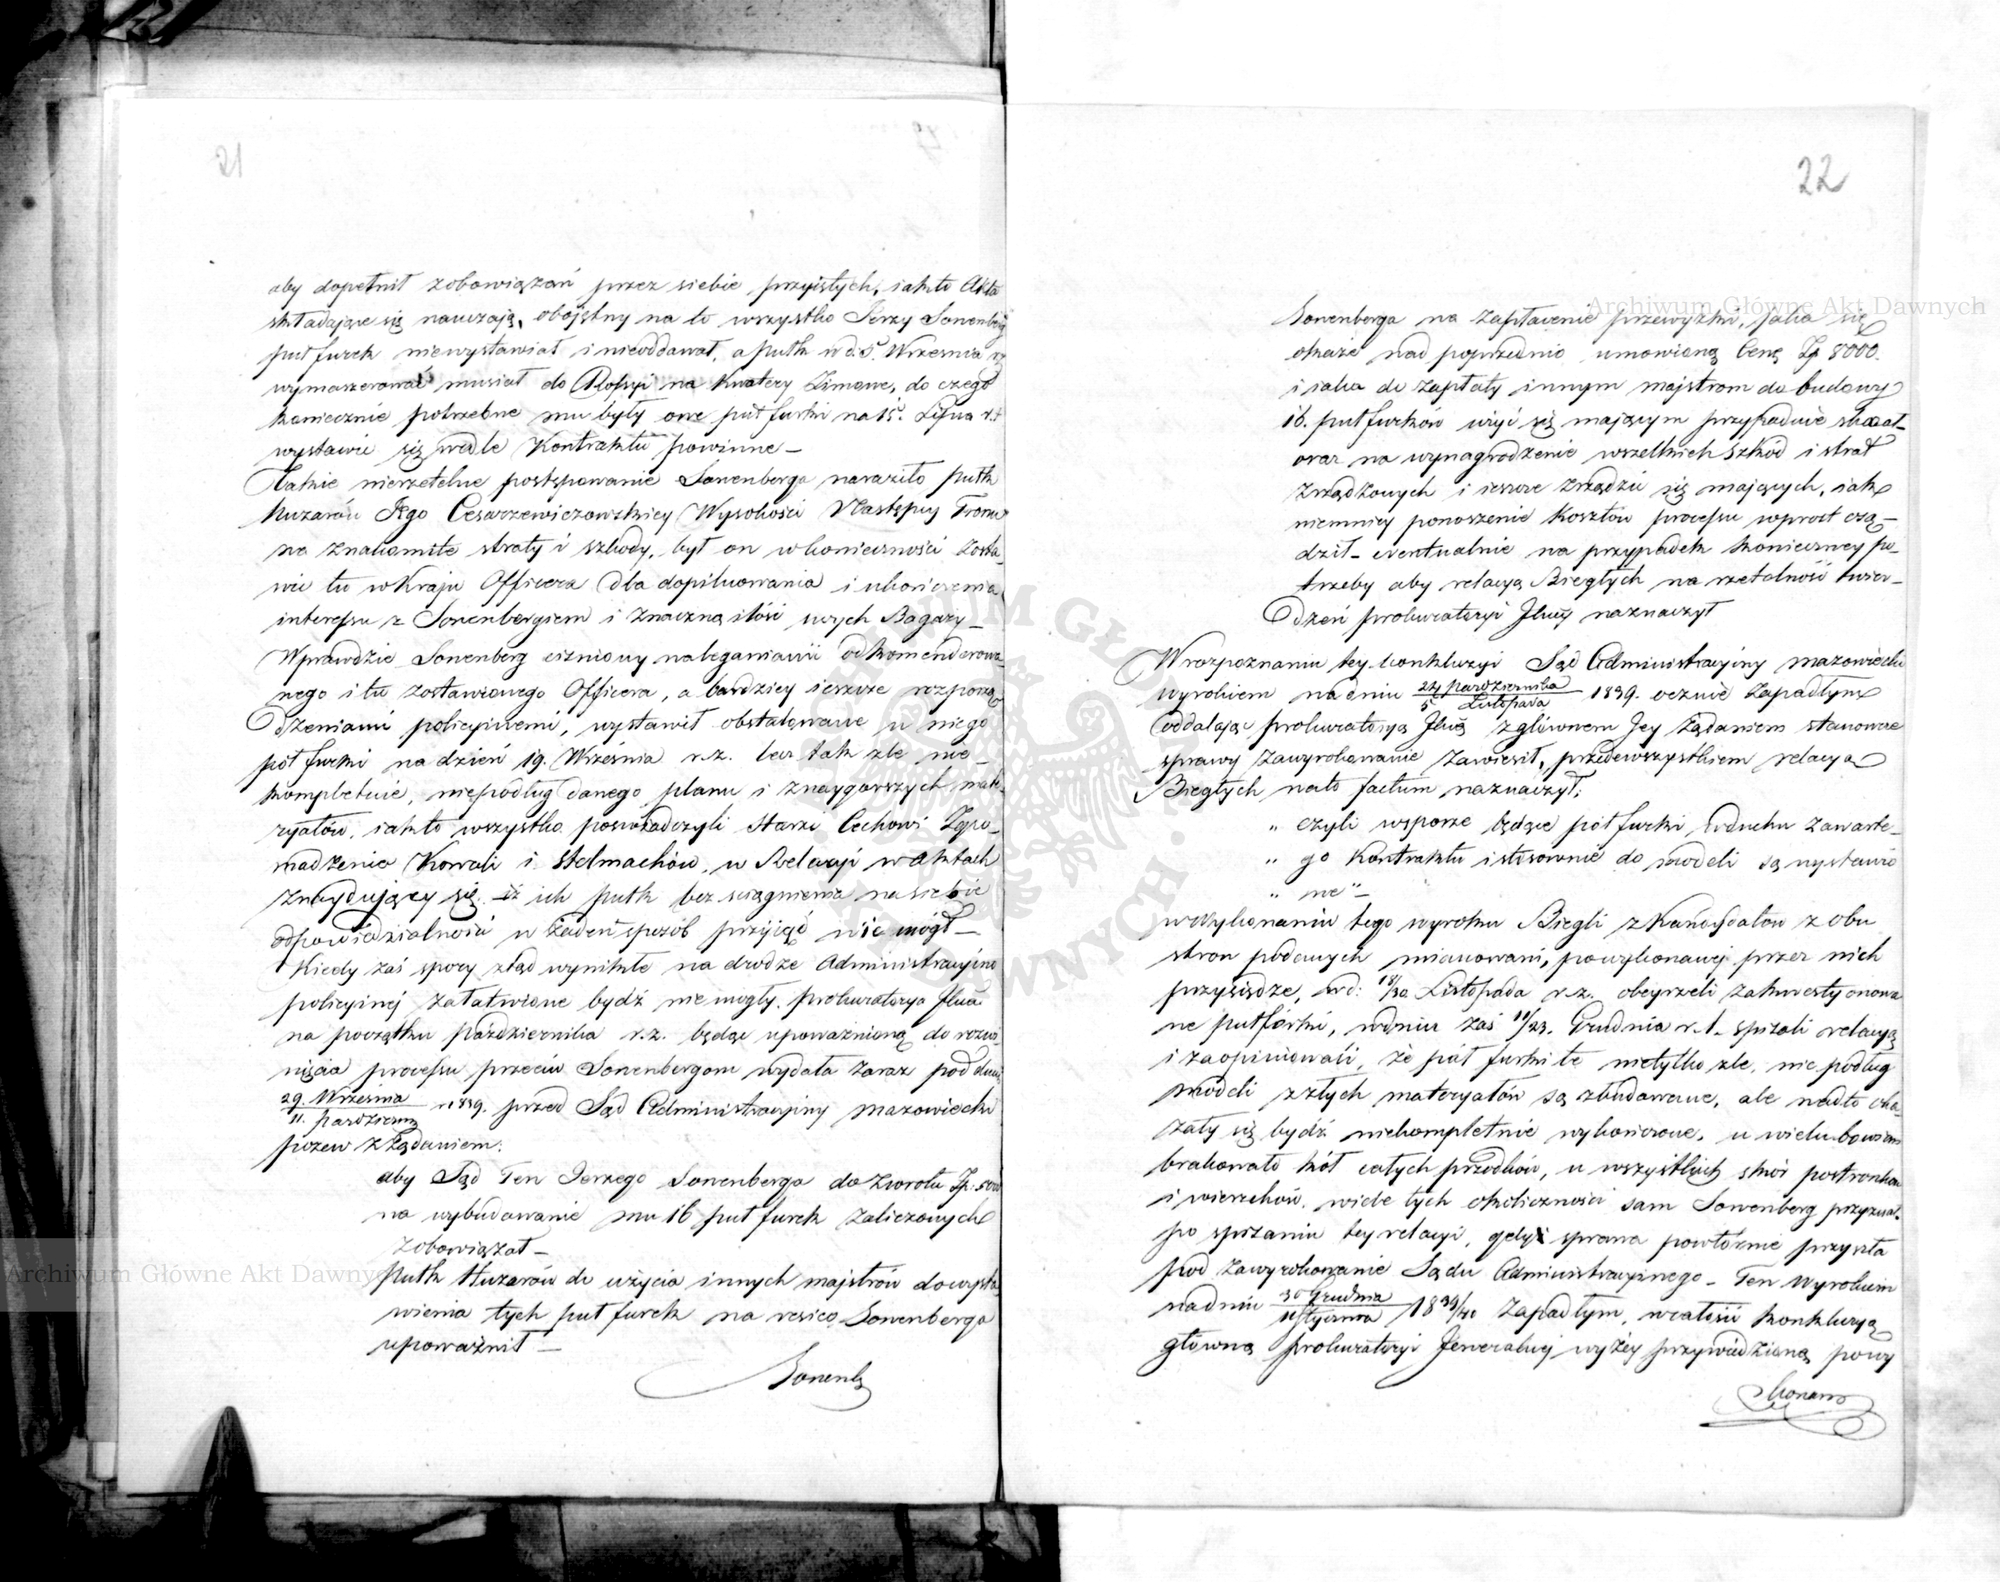 21
aby dopełnił zobowiązań przez siebie przyjętych, iakto Akta
składające się nauczają, obojętny na to wszystko Jerzy Sonenberg
put furek niewystawiał i nieoddawał, a pułk w d. 5. Września r.z.
wymaszerować musiał do Rossyi na Kwatery Zimowe, do czego
koniecznie potrzebne mu były one put furki na 15. Lipca r.z.
wystawić się wedle Kontraktu powinne –
Takie nierzetelne postępowanie Sonenberga naraziło pułk
Huzarów Jego Cesarzewiczowskiey Wysokości Następcy Tronu
na znakomite straty i szkody, był on w konieczności zosta-
wić tu w kraju Officera dla dopilnowania i ukończenia
interessu z Sonenbergiem i znaczną ilość swych Bagazy –
Wprawdzie Sonenberg ciśniony naleganiami odkomenderowa-
nego i tu zostawionego Officera, a bardziey ieszcze rozporzą-
dzeniami policyinemi, wystawił obstalowane u niego
pół furki na dzień 19. Września r.z. lecz tak źle nie-
kompletnie, niepodług danego planu i z naygorszych mate-
ryałów, iakto wszystko poswiadczyli Starsi Cechowi Zgro-
madzenia Kowali i Stelmachów, w Relacyi w aktach
znaydującey się, iż ich pułk bez sciągnienia na siebie
odpowiedzialności w żaden sposób przyiąć nie mógł –
Kiedy zaś spory ztąd wynikłe na drodze Administracyino
policyinej załatwione bydź nie mogły, prokuratorya Jlna
na początku Października r.z. będąc upoważnioną do rozwi-
nięcia processu przeciw Sonenbergom wydała zaraz pod dniem
29. Września
11. Paździer. r. 1839. przed Sąd Administracyiny mazowiecki
pozew z żądaniem:
aby Sąd Ten Jerzego Sonenberga do zwrotu Zp: 5000
na wybudowanie mu 16 put furek zaliczonych
zobowiązał –
Pułk Huzarów do użycia innych majstrów do wysta-
wienia tych put furek na resico Sonenberga
upoważnił –
Sonenb
22
Sonenberga na zapłacenie przewyżki, jaka się
okaże nad poprzednio umowioną Cenę Zp 8000.
i iaka do zapłaty innym majstrom do budowy
16. put furków użyć się mającym przypadnie skazał
oraz na wynagrodzenie wszelkich szkód i strat
zrządzonych i ieszcze zrządzić się mających, iak
niemniey ponoszenie kosztów processu wprost osą-
dził – eventualnie na przypadek konieczney po-
trzeby aby relacyą Biegłych na rzetelność twier-
dzeń prokuratoryi Jlney naznaczył
W rozpoznaniu tey konkluzyi Sąd Administracyiny mazowiecki
wyrokiem na dniu 24 Października
5 Listopada 1839. ocznie zapadłym
oddalając prokuratoryą Jlną z głównem Jey żądaniem stanowcze
sprawy zawyrokowanie zawiesił, przedewszystkiem relacyą
Biegłych na to factum naznaczył;
„ czyli w sporze będące pół furki w duchu zawarte-
„ go Kontraktu i stosownie do modeli są wystawio
„ ne” –
w wykonaniu tego wyroku Biegli z Kandydatów z obu
stron podanych mianowani, po wykonaney przez nich
przysiędze, w d: 18/30 Listopada r.z. obeyrzeli zakwestyonowa-
ne put furki, w dniu zaś 11/23. Grudnia r.t. spisali relacyą
i zaopiniowali, że pół furki te nietylko źle, nie podług
modeli z złych materyałów są zbudowane, ale nadto oka-
zały się bydź niekompletnie wykończone, u wielu bowiem
brakowało kół całych przodków, u wszystkich skór postronków
i wierzchów, wiele tych okoliczności sam Sonenberg przyznał.
po spisaniu tey relacyi, gdy sprawa powtórnie przyszła
pod zawyrokowanie Sądu Administracyinego – Ten Wyrokiem
na dniu 30 Grudnia
11 Stycznia 1839/40 zapadłym, w całości konkluzyą
główną Prokuratoryi Jeneralney wyżey przywiedzioną powy